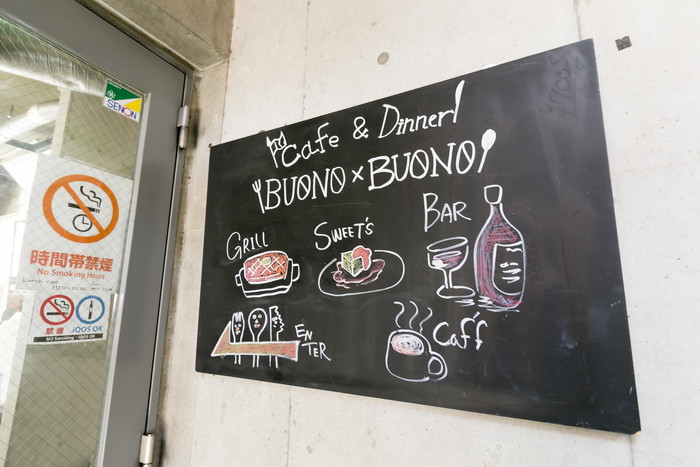 SENON
時間帯禁煙
No Smoking Hours
禁煙
iQOS OK
NO Smoking iQOS OK
Cafe & Dinner
BUONO × BUONO
GRILL
SWEET'S
BAR
EN
TER
Caf'f